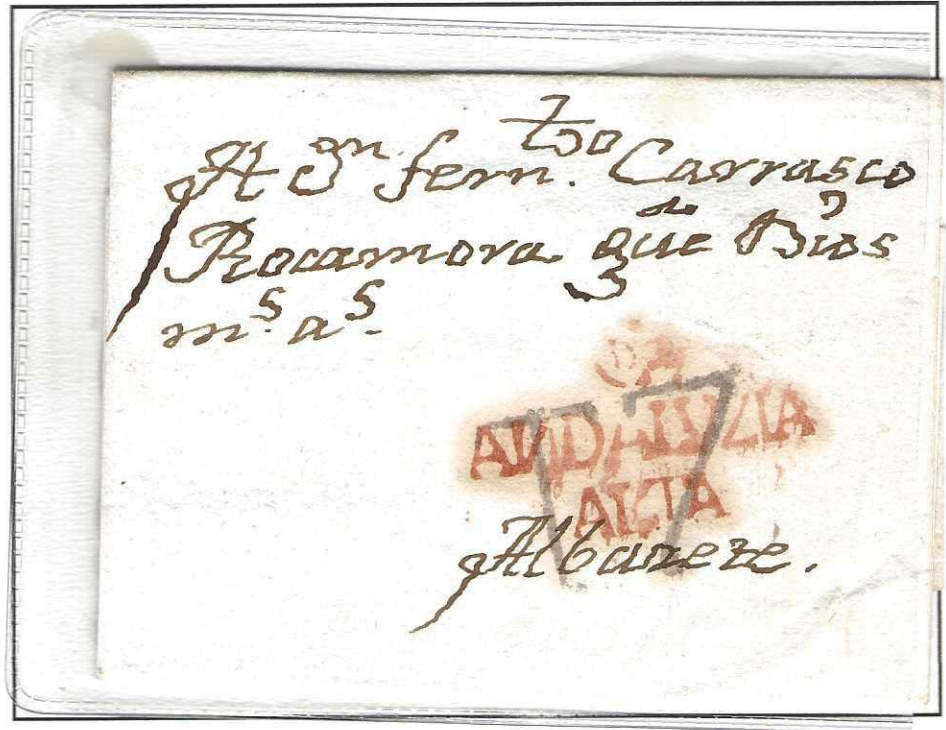 A Dn. fern.do Carrasco
Rocamora que Dios
ms. as.
ANDALVZIA
ALTA
Albazete.